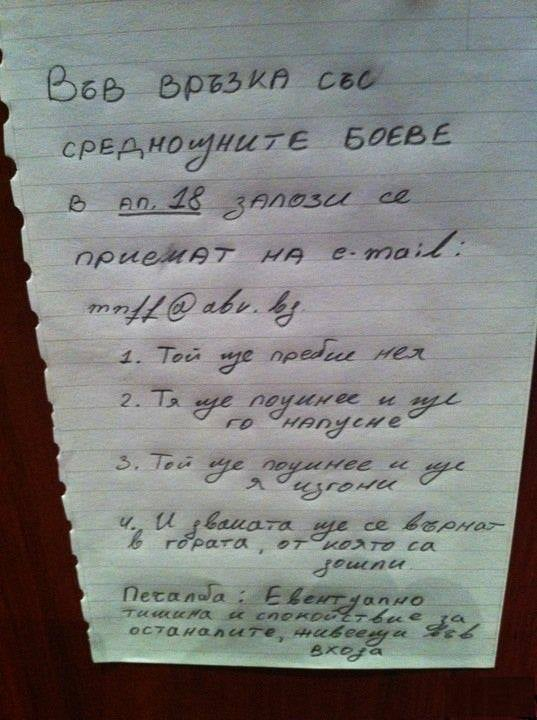 Във връзка със
среднощните боеве
в ап. 18 залози се
приемат на e-mail:
mnff@abv.bg
1. Той ще пребие нея
2. Тя ще поумнее и ще
го напусне
3. Той ще поумнее и ще
я изгони
4. И двамата ще се върнат
в гората, от която са
дошли
Печалба: Евентуално
тишина и спокойствие за
останалите, живеещи във
входа